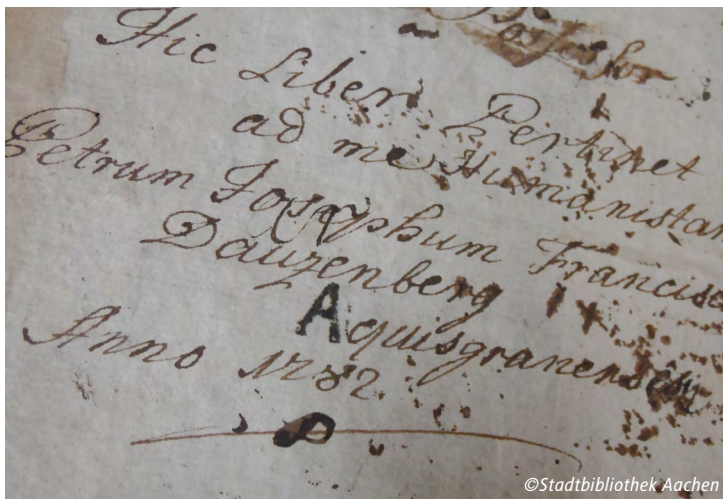 Hic Liber Pertinet
ad me Humanistam
Petrum Josephum Francisc
Dautzenberg
Aquisgranensem
Anno 1782
©Stadtbibliothek Aachen